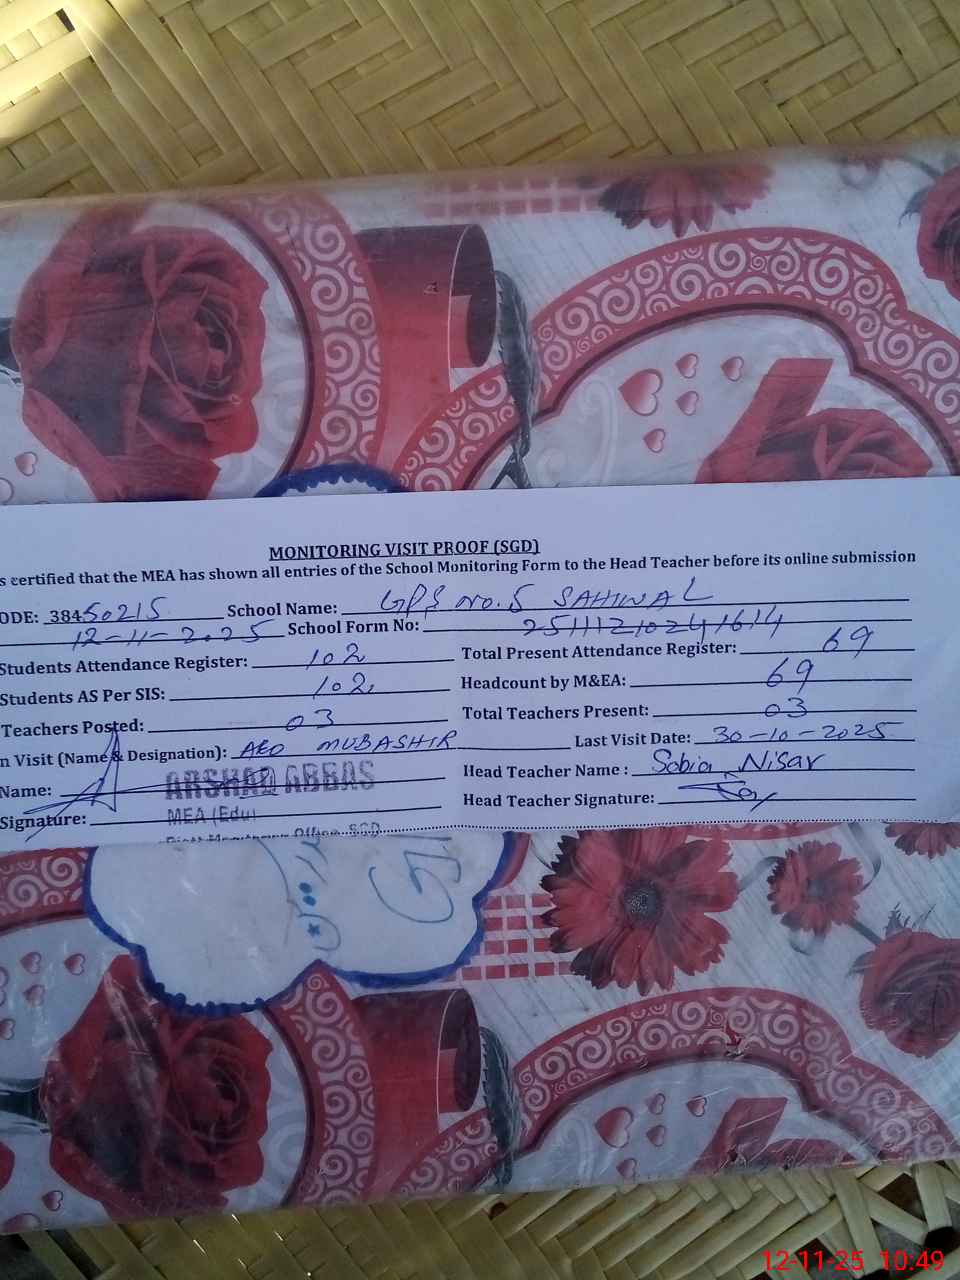 MONITORING VISIT PROOF (SGD)
s certified that the MEA has shown all entries of the School Monitoring Form to the Head Teacher before its online submission
ODE: 38450215 School Name: GPS No. 5 SAHIWAL
12-11-2025 School Form No:
Students Attendance Register: 102 Total Present Attendance Register: 69
Students AS Per SIS: 102 Headcount by M&EA: 69
Teachers Posted: 03 Total Teachers Present: 03
n Visit (Name & Designation): AEO MUBASHIR Last Visit Date: 30-10-2025
Name: ARSHAD ABBAS Head Teacher Name : Sobia Nisar
Signature: MEA (Edu) Head Teacher Signature:
12-11-25 10:49